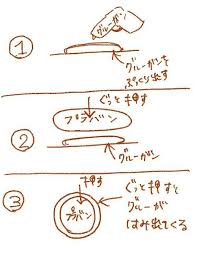 ①
グルーガン
グルーガンを
ぷっくり出す
②
ぐっと押す
プラバン
グルーガン
③
押す
プラバン
ぐっと押すと
グルーガン
はみ出てくる